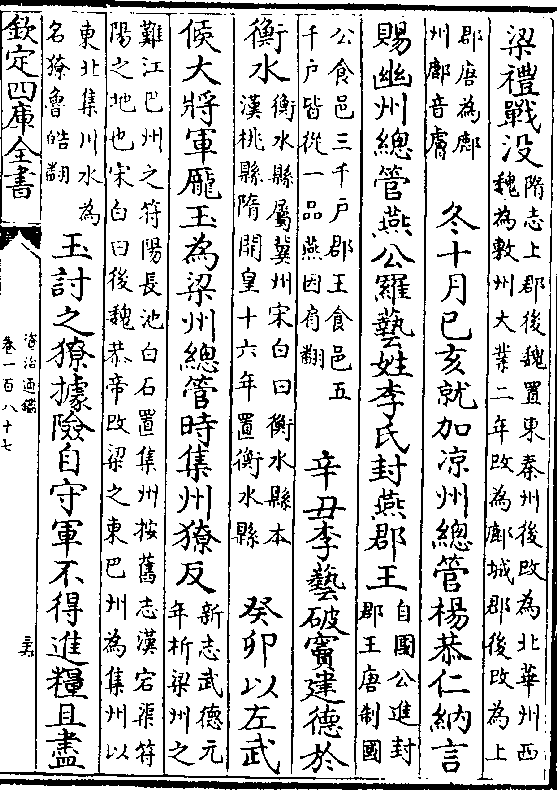 梁禮戰没
隋志上郡後魏置東秦州後改為北華州西
魏為敷州大業二年改為鄜城郡後改為上
郡唐為鄜
州鄜音膚
冬十月己亥就加凉州總管楊恭仁納言
賜幽州總管燕公羅藝姓李氏封燕郡王
自國公進封
郡王唐制國
公食邑三千户郡王食邑五
千户皆從一品燕因肩翻
辛丑李藝破竇建德於
衡水
衡水縣屬冀州宋白曰衡水縣本
漢桃縣隋開皇十六年置衡水縣
癸卯以左武
候大將軍龎玉為梁州總管時集州獠反
新志武德元
年析梁州之
難江巴州之符陽長池白石置集州按舊志漢宕渠符
陽之地也宋白曰後魏恭帝改梁之東巴州為集州以
東北集川水為
名獠魯皓翻
玉討之獠據險自守軍不得進糧且盡
欽定四庫全書
資治通鑑
卷一百八十七